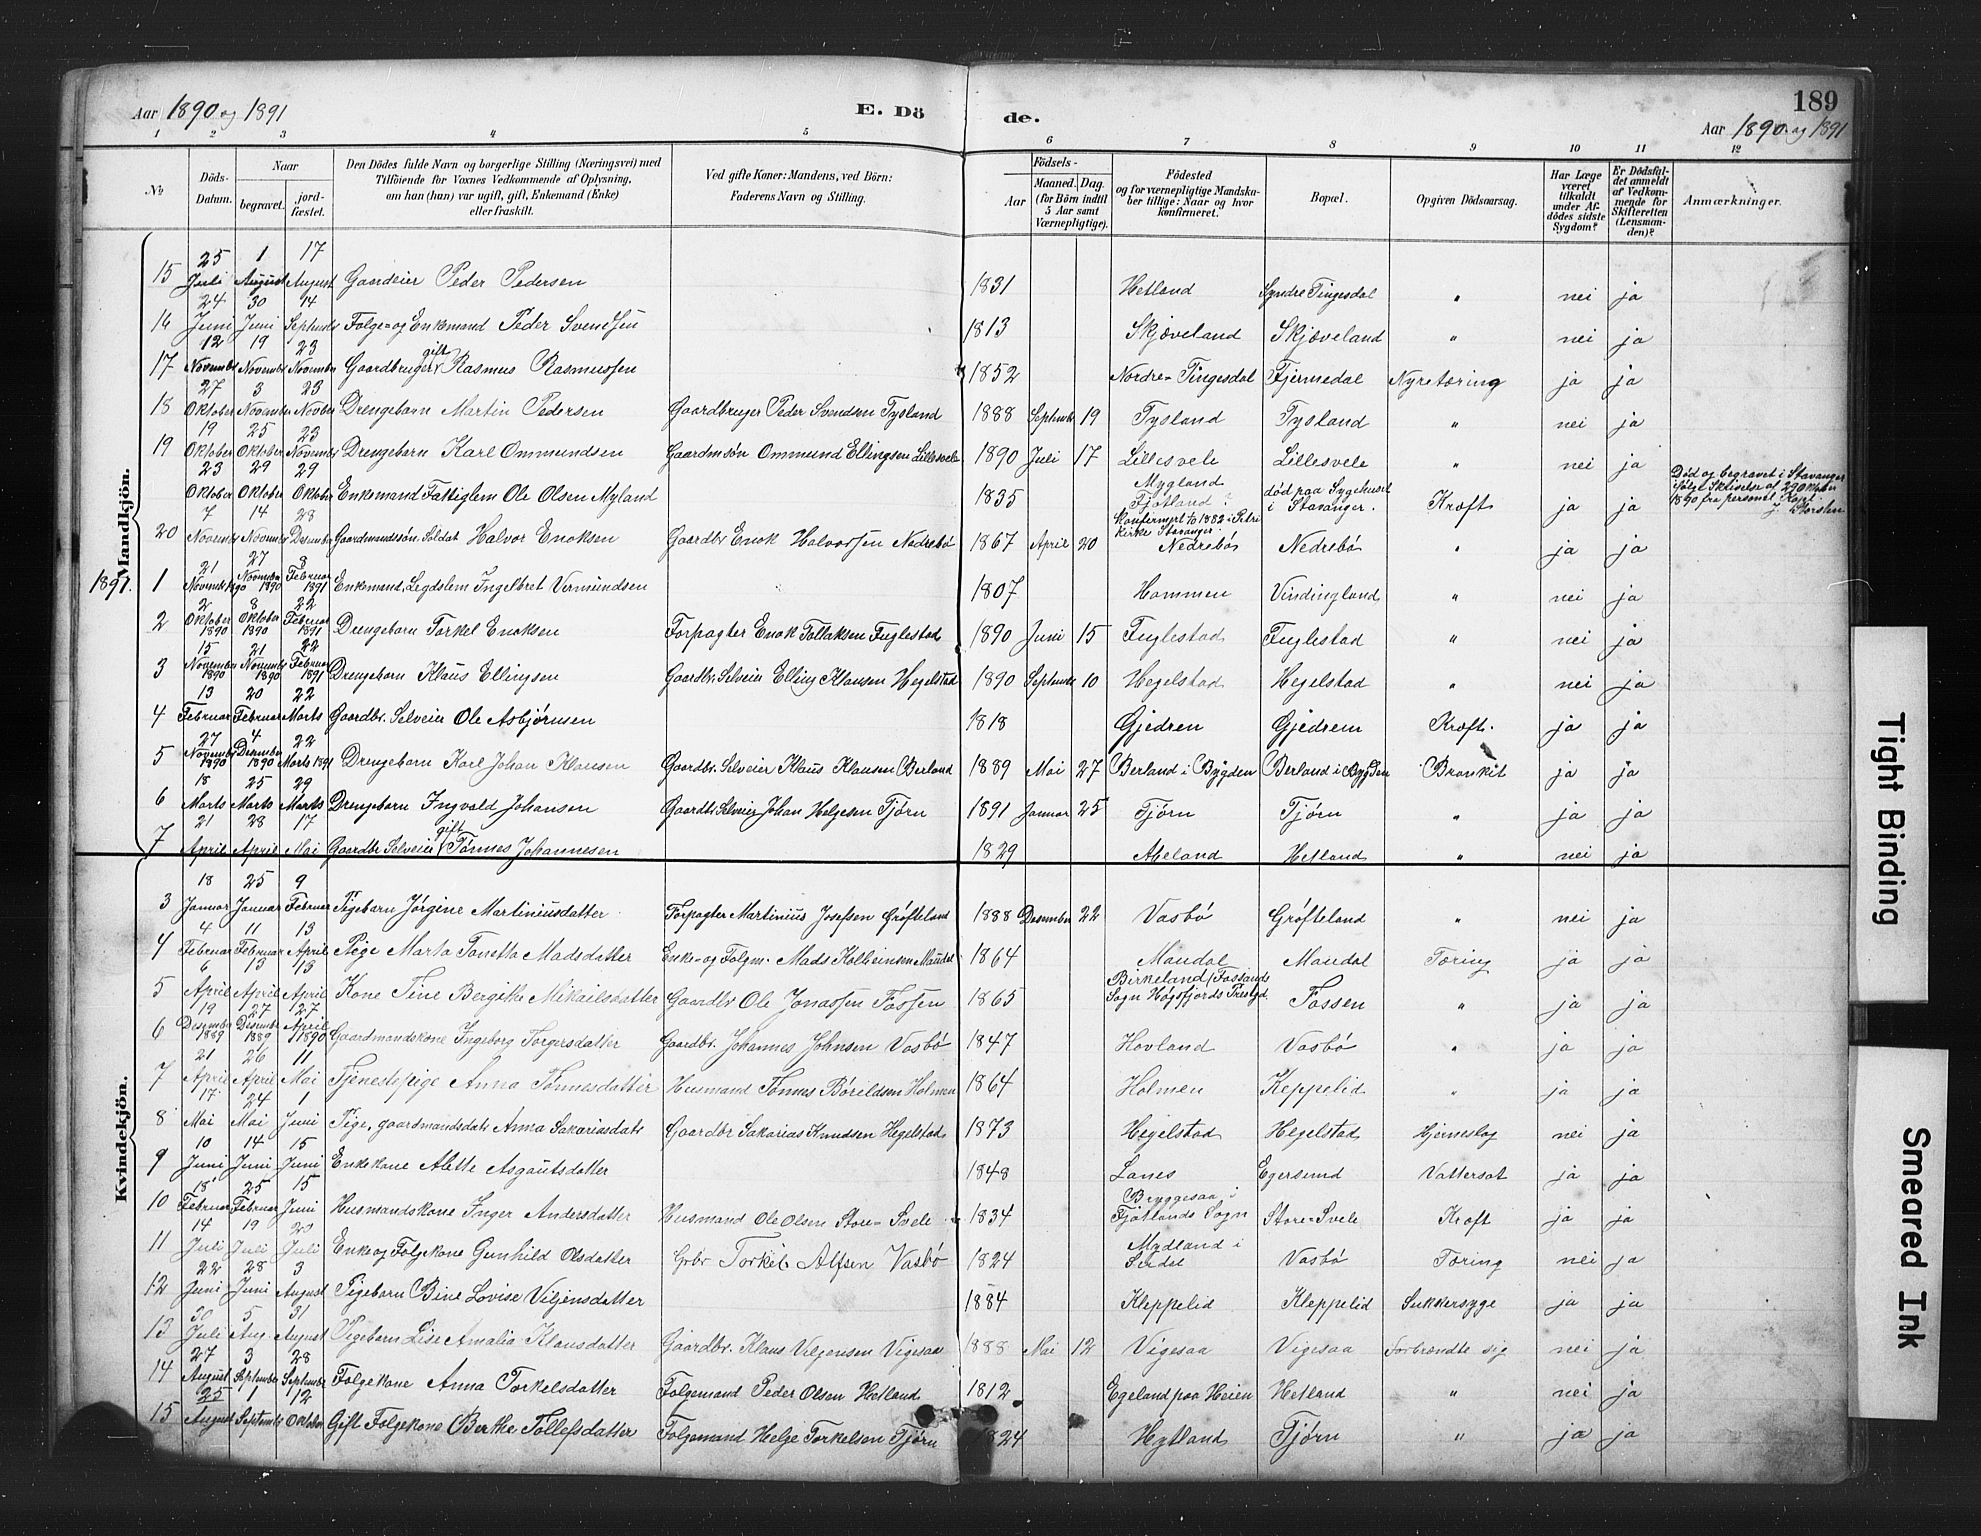 Aar 1890 og 1891
E. Dö
de.
189
Aar 1890 og 1891
1 2 3 4 5 6 7 8 9 10 11 12
No
Döds-Datum.
Naar
begravet.
jord-fæstet.
Den Dödes fulde Navn og borgerlige Stilling (Næringsvei) med
Tilföiende for Voxnes Vedkommende af Oplysning,
om han (hun) var ugift, gift, Enkemand (Enke)
eller fraskilt.
Ved gifte Koner: Mandens, ved Börn:
Faderens Navn og Stilling.
Födsels-
Aar
Maaned. Dag.
(for Börn indtil
5 Aar samt
Værnepligtige).
Födested
og for værnepligtige Mandska-
ber tillige: Naar og hvor
konfirmeret.
Bopæl.
Opgiven Dödsaarsag.
Har Læge
været
tilkaldt
under Af-
dödes sidste
Sygdom?
Er Dödsfal-
det anmeldt
af Vedkom-
mende for
Skifteretten
(Lensman-
den)?
Anmærkninger.
Mandkjön.
15 25 Juli 1 August 17 August Gaardeier Peder Pedersen 1831 Hetland Syndre Tingesdal " nei ja
16 24 Juni 30 Juni 14 Septembr Folge- og Enkemand Peder Svendsen 1813 Skjæveland Skjæveland " nei ja
17 12 Novembr 19 Novembr 23 Novembr Gaardbruger gift Rasmus Rasmussen 1852 Nordre-Tingesdal Fjermedal Nyretæring ja ja
18 27 Oktober 3 November 23 Novber Drengebarn Martin Pedersen Gaardbruger Peder Svendsen Tysland 1888 Septembr 19 Tysland Tysland " nei ja
19 19 Oktober 25 Oktober 23 Novembr Drengebarn Karl Ommundsen Gaardmsøn Ommund Ellingsen Lillesvele 1890 Juli 17 Lillesvele Lillesvele " nei ja
23 Oktober 29 Oktober 29 Oktober Enkemand Fattiglem Ole Olsen Myland 1835 Mygland Fjotland? død paa Sygehuset i Stavanger. Kræft ja ja Død og begravet i Stavanger ifølge Skrivelse af 29 Oktober 1890 fra personel Kap.
20 7 Novembr 14 Novembr 28 Desember Gaardmandssøn, Soldat Halvor Enoksen Gaardbr Enok Halvorsen Nedrebø 1867 April 20 Konfirmert 1882 i Petri Kirke Stavanger. Nedrebø Nedrebø " ja ja
1891. 1 21 Novembr 27 November 1890 8 Februar 1891 Enkemand, Legdslem Ingelbret Vermundsen 1807 Hommen Vindingland " nei ja
2 2 Oktober 1890 8 Oktober 1890 22 Februar 1891 Drengebarn Torkel Enoksen Forpagter Enok Tollaksen Fuglestad 1890 Juni 15 Fuglestad Fuglestad " nei ja
3 15 November 1890 21 Novembr 1890 22 Februar 1891 Drengebarn Klaus Ellingsen Gaardbr. Selveier Elling Klausen Hegelstad 1890 Septembr 10 Hegelstad Hegelstad " nei ja
4 13 Februar 20 Februar 22 Marts Gaardbr. Selveier Ole Asbjørnsen 1818 Gjedrem Gjedrem Kræft. ja ja
5 27 November 1890 4 Desember 1890 22 Marts 1891 Drengebarn Karl Johan Klausen Gaardbr. Selveier Klaus Klausen Berland 1889 Mai 27 Berland i Bygden Berland i Bygden Bronkit ja ja
6 18 Marts 25 Marts 29 Marts Drengebarn Ingvald Johansen Gaardbr Selveier Johan Helgesen Tjørn 1891 Januar 25 Tjørn Tjørn " ja ja
7 21 April 28 April 17 Mai Gaardbr Selveier gift Tønnes Johannesen 1829 Aheland Hetland " nei ja
Kvindekjön.
3 18 Januar 25 Januar 9 Februar Pigebarn Jørgine Martiniusdatter Forpagter Martinius Josefsen Grøfteland 1888 Desember 22 Vasbø Grøfteland " nei ja
4 4 Februar 11 Februar 13 April Pige Marta Tonetta Madsdatter Enke- og Folgm. Mads Kolbeinsen Maudal 1864 Maudal Maudal Tæring ja ja
5 6 April 13 April 13 April Kone Tine Bergithe Mikailsdatter Gaardbr Ole Jonassen Fossen 1865 Birkeland Fossands Sogn Høgsfjords Prestgd. Fossen " ja ja
6 19 Desember 1889 27 Desember 1889 27 April 1890 Gaardmandskone Ingeborg Torgersdatter Gaardbr. Johannes Johnsen Vasbø 1847 Hovland Vasbø " ja ja
7 21 April 26 April 11 Mai Tjenestepige Anna Tønnesdatter Husmand Tønnes Børildsen Holmen 1864 Holmen Keppelid " ja ja
8 17 Mai 24 Mai 1 Juni Pige, gaardmandsdatr Anna Sakariasdatr Gaardbr Sakarias Knudsen Hegelstad 1873 Hegelstad Hegelstad Hjerneslag nei ja
9 10 Juni 14 Juni 15 Juni Enkekone Alette Asgautsdatter 1848 Lanes Egersund Vattersot ja ja
10 18 Februar 25 Februar 15 Juni Husmandskone Inger Andersdatter Husmand Ole Olsen Store-Svele 1834 Bryggesaa i Fjotlands Sogn Store-Svele Kræft ja ja
11 14 Juli 19 Juli 20 Juli Enke og Folgekone Gunhild Olsdatter Grbr Torkil Alfsen Vasbø 1824 Mydland i Sirdal Vasbø Tæring nei ja
12 22 Juni 28 Juni 3 August Pigebarn Bine Lovise Viljensdatter 1884 Kleppelid Kleppelid Sukkersyge ja ja
13 30 Juli 5 Aug 31 August Pigebarn Lise Amalia Klausdatter Gaardbr. Klaus Viljensen Vigesaa 1888 Mai 12 Vigesaa Vigesaa Forbrændte sig nei ja
14 27 August 3 September 28 September Folgekone Anna Torkelsdatter Folgemand Peder Olsen Hetland 1812 Egeland paa Heien Hetland " nei ja
15 25 August 1 Septembr 12 Oktober Gift Folgekone Berthe Tollefsdatter Folgemand Helge Torkelsen Tjørn 1824 Hytland Tjørn " ja ja
Tight Binding
Smeared Ink